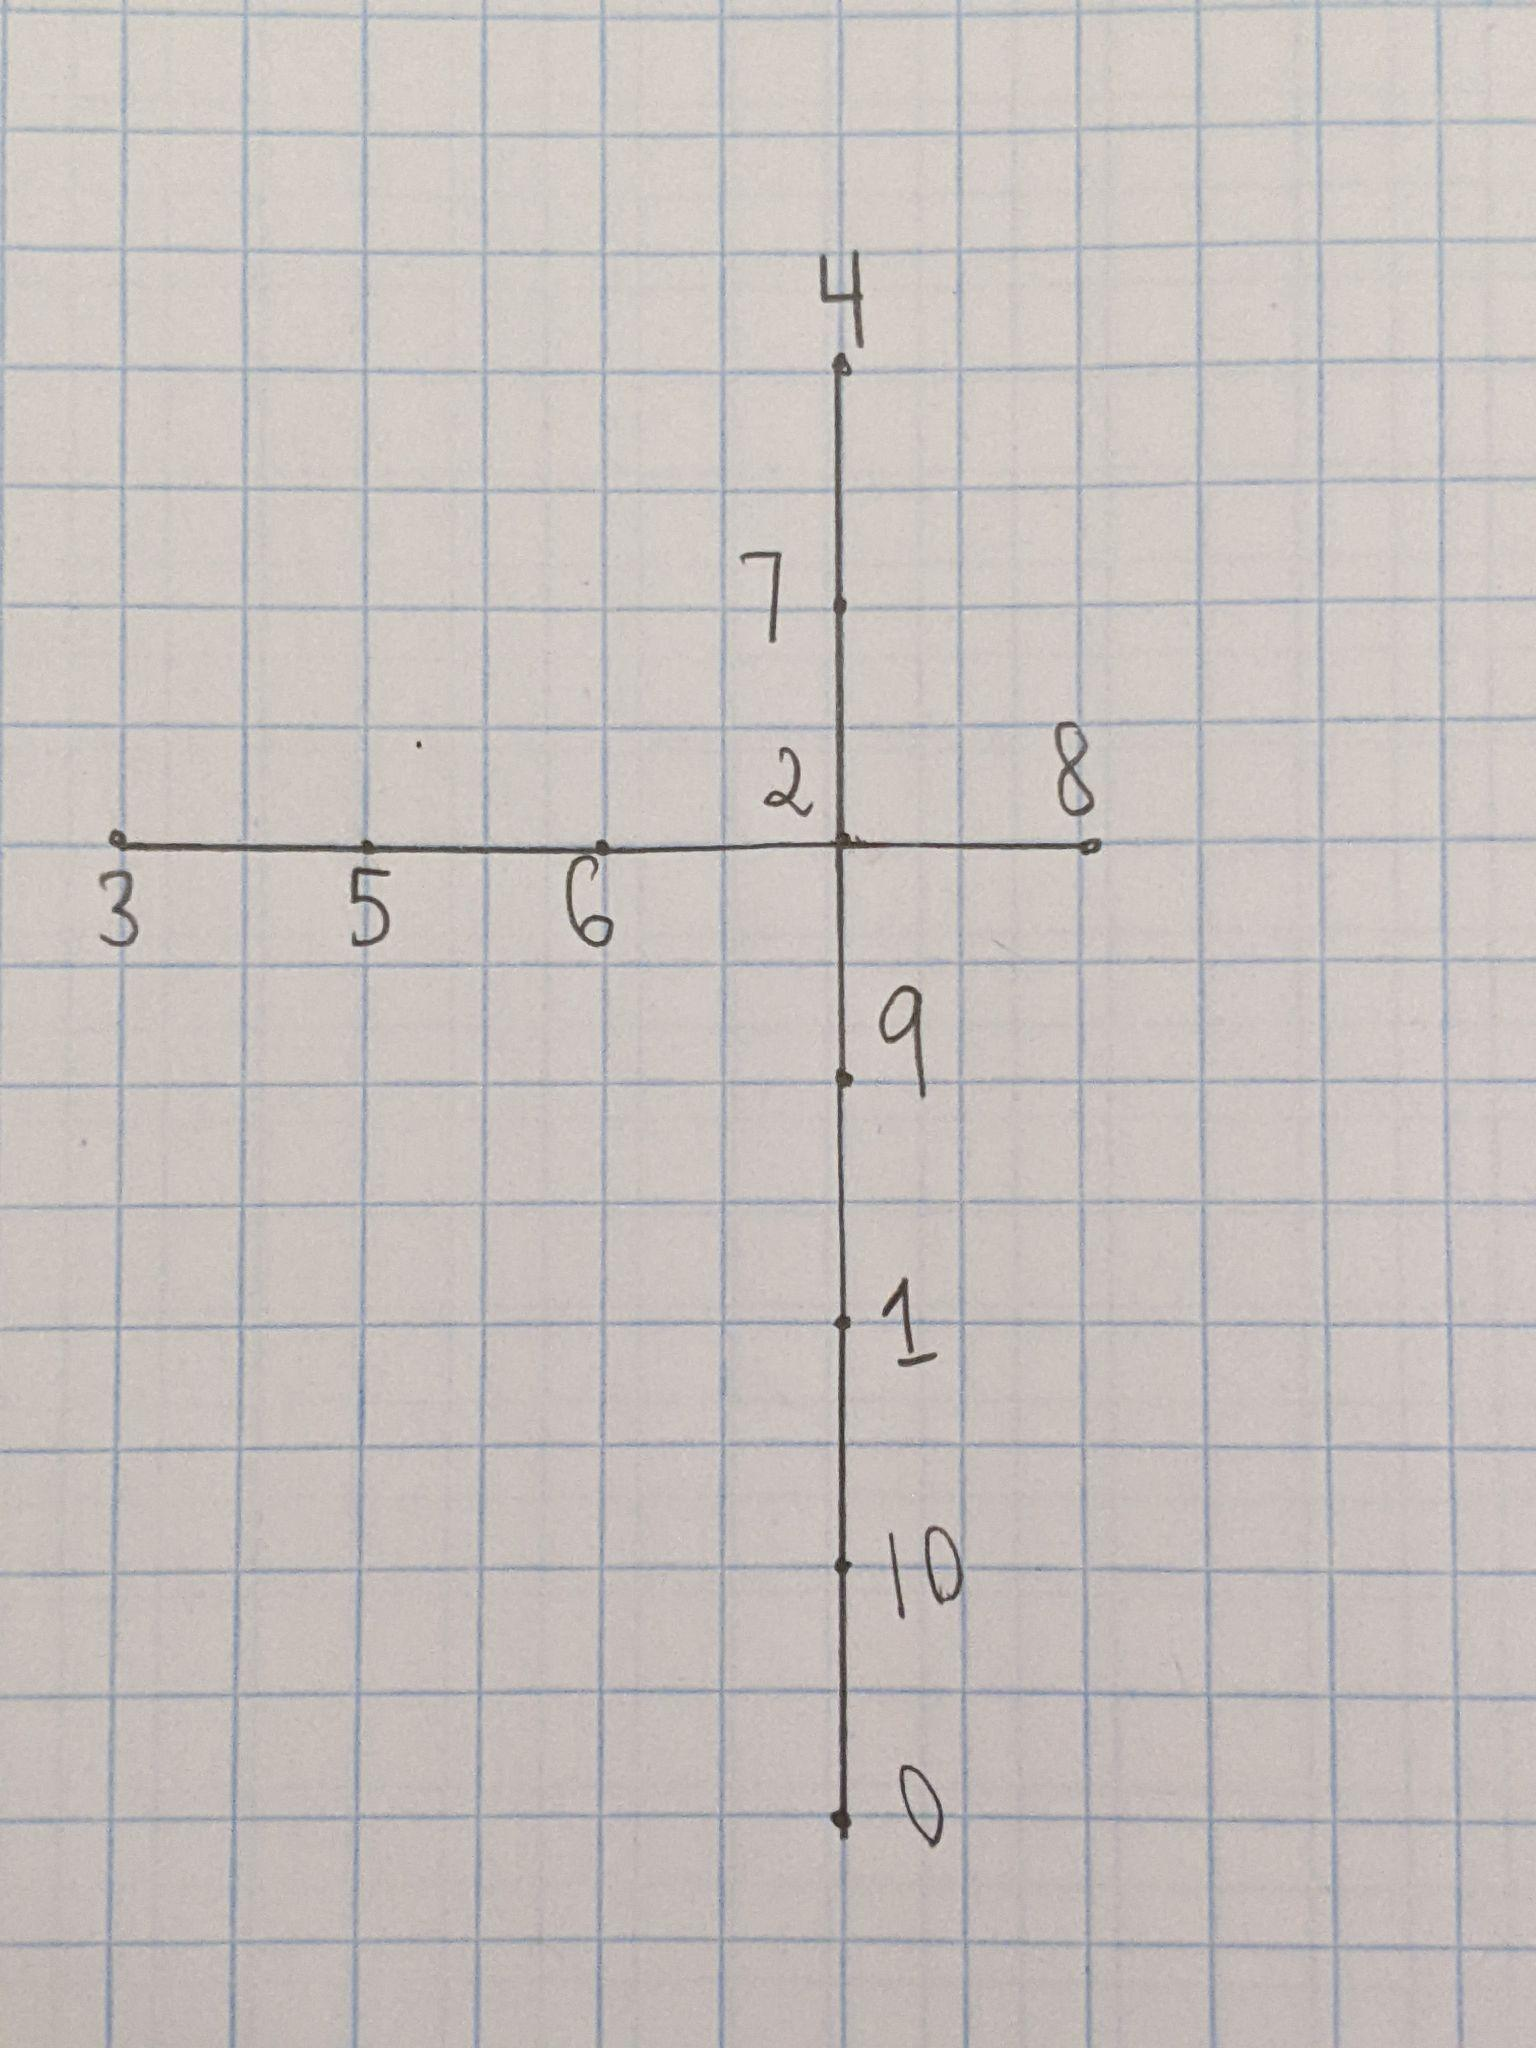 4
7
2 8
3 5 6
9
1
10
0